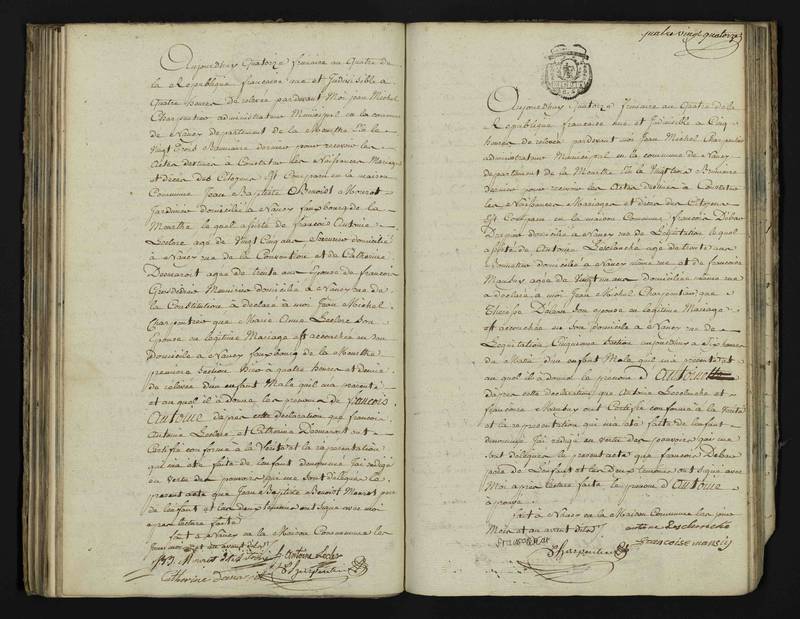 Aujourdhuy Quatorze frimaire an Quatre de
la Republique francaise une et Indivisible a
Quatre heures de relevée pardevant Moi jean Michel
Charpentier administrateur Municipal en la commune
de Nancy departement de la Meurthe Elû le
Vingt trois Brumaire dernier pour recevoir les
Actes destinés à Constater les Naissances Mariages
et décès des Citoyens Est Comparu en la maison
Commune Jean Baptiste Benoist
Jardinier domicilié à Nancy fauxbourg de la
Meurthe lequel assisté de françois Antoine
Leclerc agé de Vingt Cinq ans domicilié
à Nancy rue de la Convention et de Catherine
agée de trente ans Epouse de françois
Menuisier domicilié à Nancy rue de
la Constitution à déclaré à moi Jean Michel
Charpentier que Marie Anne Leclerc Son
Epouse en legitime Mariage est accouchée en son
Domicile à Nancy fauxbourg de la Meurthe
premiere Section hier à quatre heures et demie
de relevée d'un enfant Male qu'il m'a presenté
et au quel il à donné les prenoms de francois
Antoine d'après cette déclaration que francois
Antoine Leclerc et Catherine ont
Certifié conforme à la Verité et la représentation
qui m'a été faite de l'enfant denommé J'ai rédigé
en Vertu des pouvoirs qui me sont délégués le
présent acte que Jean Baptiste Benoist père
de l'enfant et les deux temoins ont signé avec moi
après lecture faite
fait à Nancy en la Maison Commune les
jour mois et an avant dits
Antoine Lecler
Catherine Charpentier
quatre vingt quatorze
Aujourdhuy Quatorze frimaire an Quatre de la
République française une et Indivisible à Cinq
heures de relevée pardevant moi Jean Michel Charpentier
administrateur Municipal en la commune de Nancy
departement de la Meurthe Elû le Vingt trois Brumaire
dernier pour recevoir les Actes destinés à Constater
les Naissances Mariages et décès des Citoyens
Est Comparu en la maison Commune francois
domicilié à Nancy rue de Legislation lequel
assisté de Antoine agé de trente ans
domicilié à Nancy même rue et de françoise
Mansuy agée de Vingt neuf ans domiciliée même rue
a déclaré à moi Jean Michel Charpentier que
Therese son epouse en legitime Mariage
est accouchée en Son domicile à Nancy rue de
Legislation Cinquieme Section aujourdhuy à Six heures
du Matin d'un enfant Male qu'il m'a presenté et
au quel il à donné le prenom d'Antoine
d'après cette déclaration que Antoine et
françoise Mansuy ont Certifié conforme à la Verité
et la représentation qui m'a été faite de l'enfant
denommé J'ai rédigé en Vertu des pouvoirs qui me
sont délégués le présent acte que françois
père de l'Enfant et les deux temoins ont signé avec
Moi après lecture faite le prenom d'Antoine
approuvé
fait à Nancy en la Maison Commune les jour
Mois et an avant dits
antoine
Charpentier
francoise mansuy